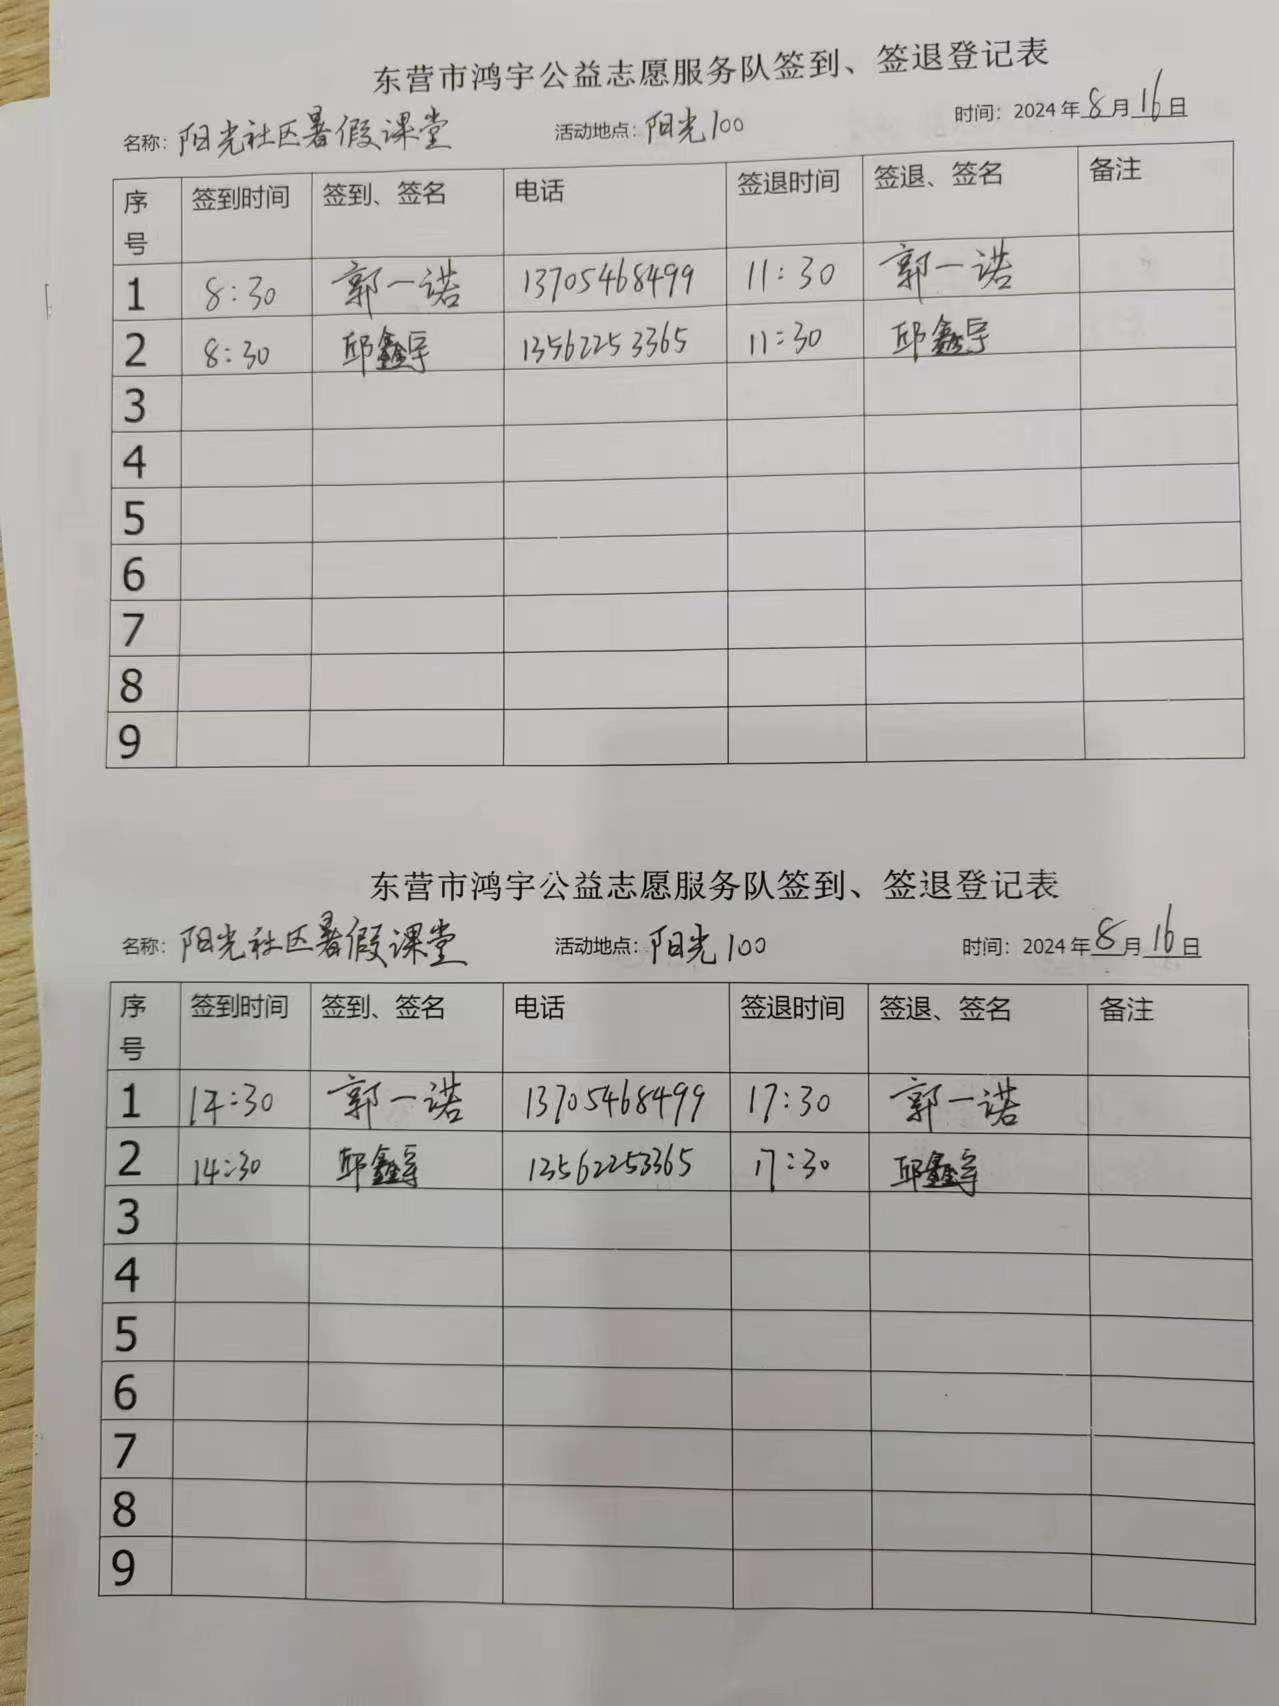 东营市鸿宇公益志愿服务队签到、签退登记表
名称：阳光社区暑假课堂 活动地点：阳光100 时间：2024年8月16日
序号 签到时间 签到、签名 电话 签退时间 签退、签名 备注
1 8:30 郭一诺 13705468499 11:30 郭一诺
2 8:30 邱鑫宇 13562253365 11:30 邱鑫宇
3
4
5
6
7
8
9
东营市鸿宇公益志愿服务队签到、签退登记表
名称：阳光社区暑假课堂 活动地点：阳光100 时间：2024年8月16日
序号 签到时间 签到、签名 电话 签退时间 签退、签名 备注
1 14:30 郭一诺 13705468499 17:30 郭一诺
2 14:30 邱鑫宇 13562253365 17:30 邱鑫宇
3
4
5
6
7
8
9